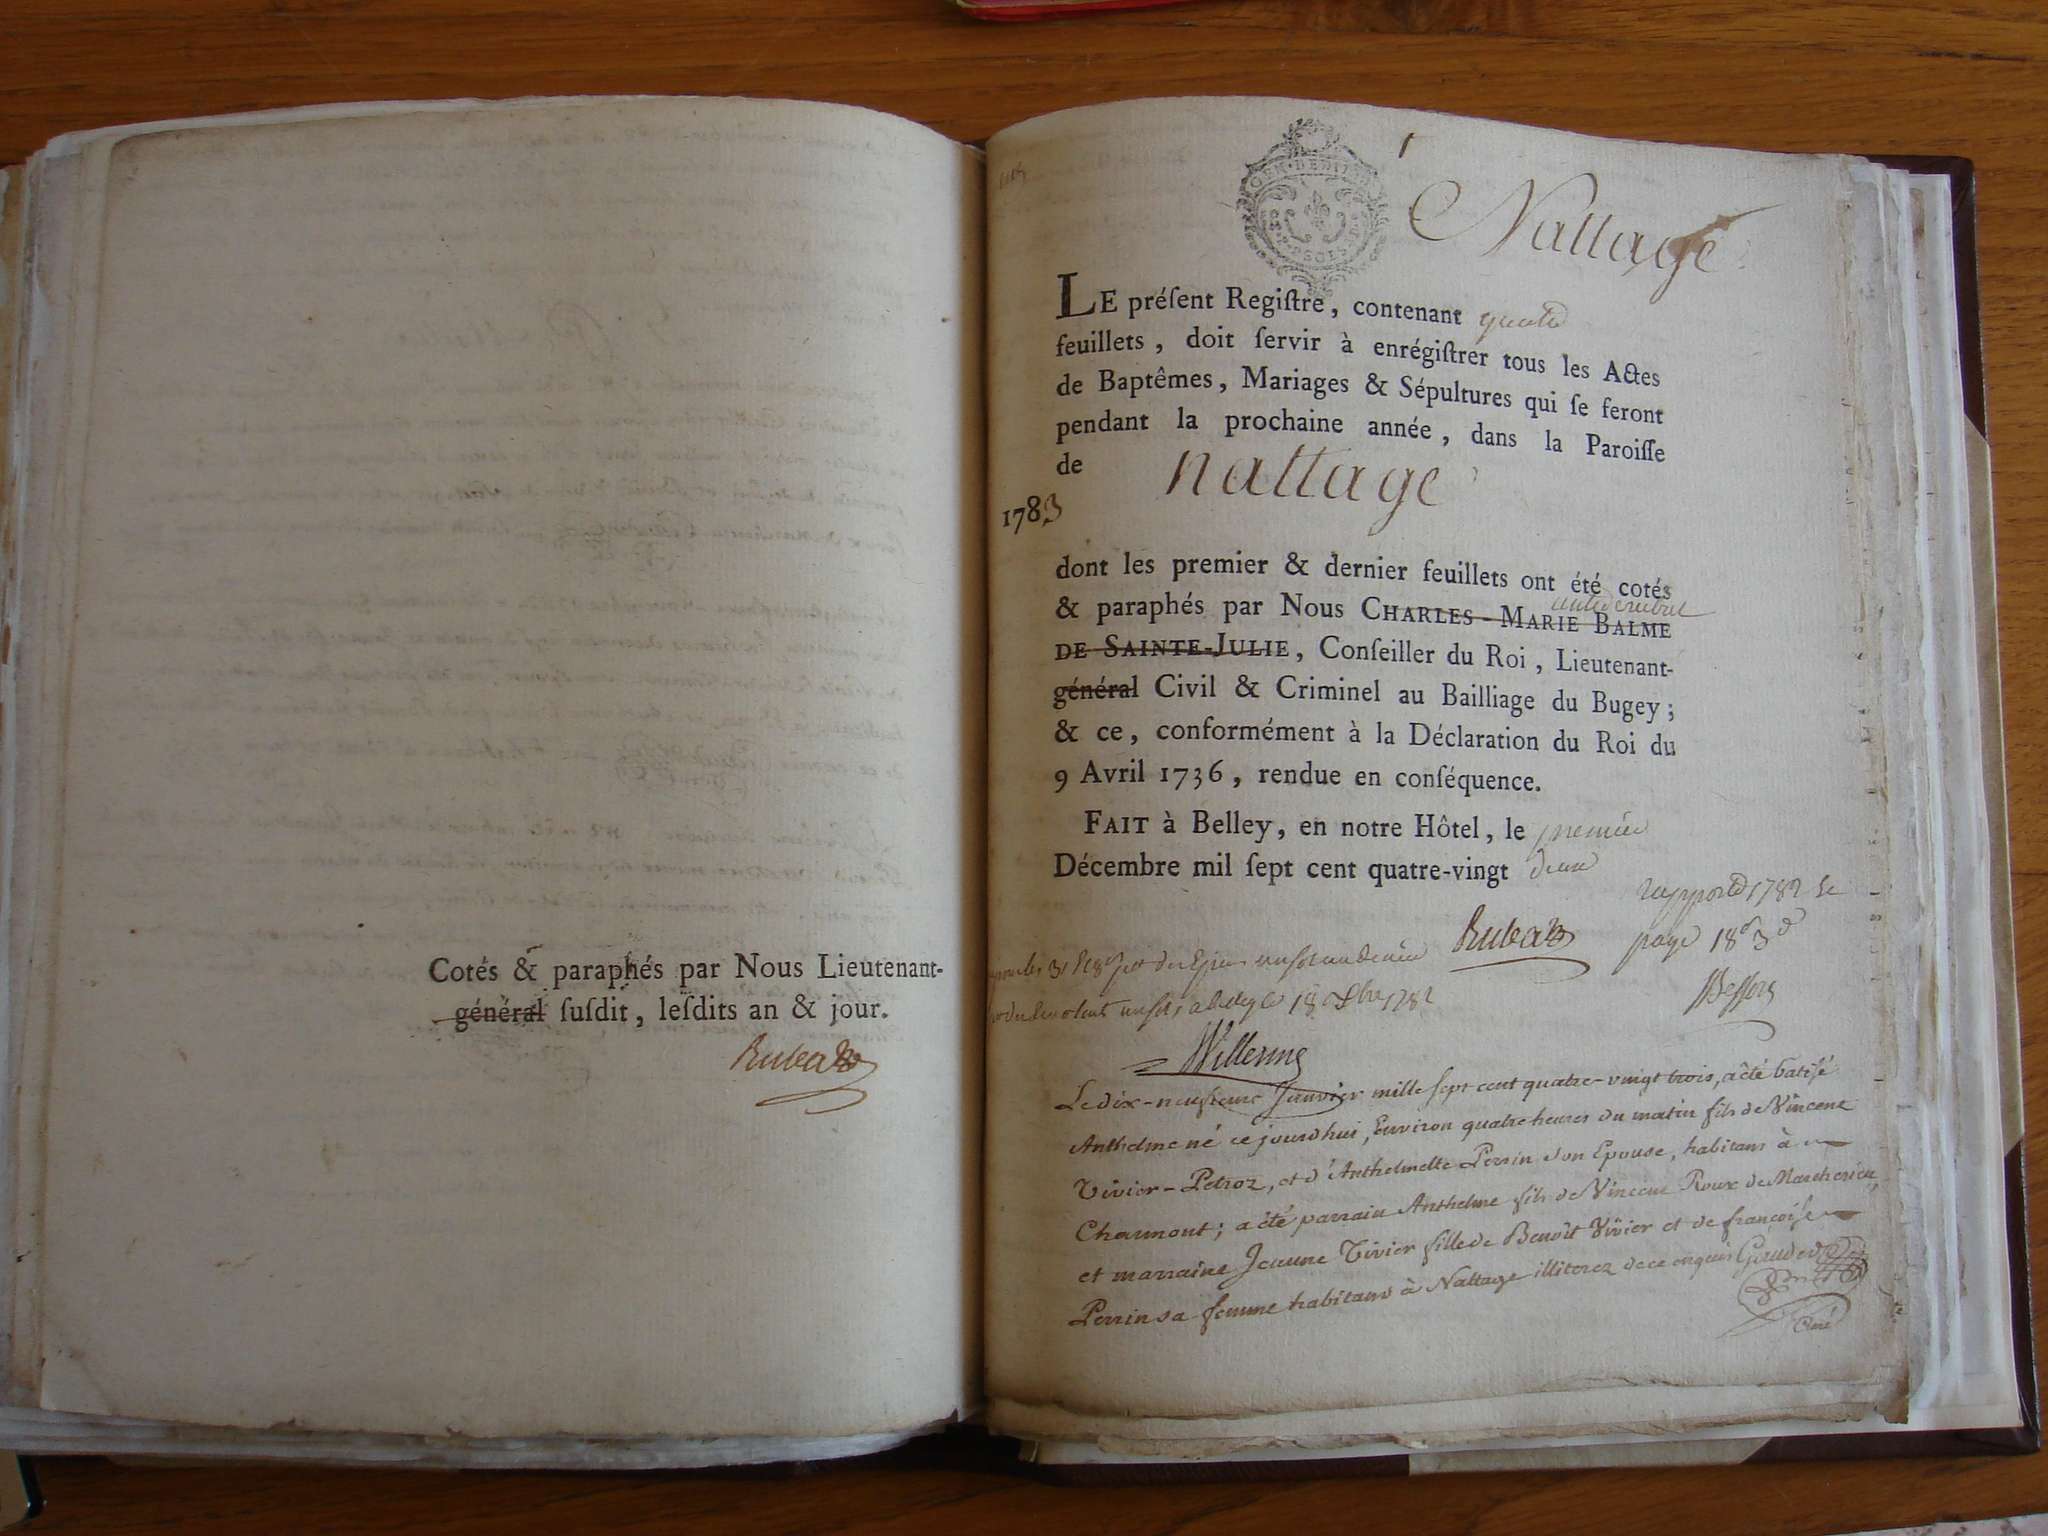 Cotés & paraphés par Nous Lieutenant-
général ſuſdit, leſdits an & jour.
Rubat
1
Nattage
LE préſent Regiſtre, contenant quatre
feuillets, doit ſervir à enrégiſtrer tous les Actes
de Baptêmes, Mariages & Sépultures qui ſe feront
pendant la prochaine année, dans la Paroiſſe
de nattage
1783
dont les premier & dernier feuillets ont été cotés
& paraphés par Nous CHARLES-MARIE BALME
DE SAINTE-JULIE, Conſeiller du Roi, Lieutenant-
général Civil & Criminel au Bailliage du Bugey;
& ce, conformément à la Déclaration du Roi du
9 Avril 1736, rendue en conſéquence.
FAIT à Belley, en notre Hôtel, le premier
Décembre mil ſept cent quatre-vingt deux
Rubat
1782
page 18
18 1782
Le dix-neufieme Janvier mille sept cent quatre-vingt trois, a été batisé
Anthelme né ce jourd'hui, Environ quatre heures du matin fils de Vincent
Vivier-Petroz, et d'Anthelmette Perrin son Epouse, habitans à
Charmont; a été parrain Anthelme fils de Vincent Roux de Marcherieu,
et marraine Jeanne Vivier fille de Benoît Vivier et de françoise
Perrin sa femme habitans à Nattage illiterez de ce enquis
Curé